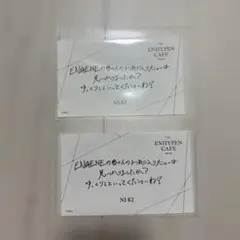 The
ENHYPEN
CAFE
ENGENEの皆さんのお気に入りメニューは
見つかりましたか?
ゆっくりしていってくださいね♡
NI-KI
The
ENHYPEN
CAFE
ENGENEの皆さんのお気に入りメニューは
見つかりましたか?
ゆっくりしていってくださいね♡
NI-KI